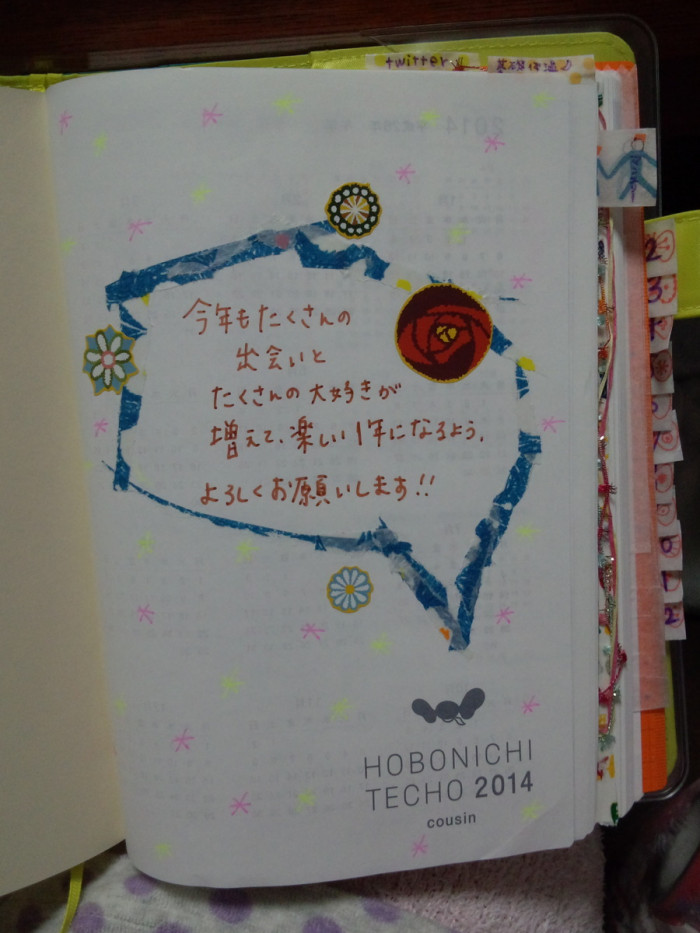 twitter
今年もたくさんの
出会いと
たくさんの大好きが
増えて、楽しい1年になるよう。
よろしくお願いします!!
HOBONICHI
TECHO 2014
cousin
2
3